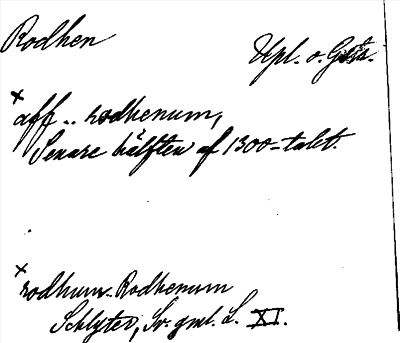 Rodhen
Upl. o. Gots.
× aff .. rodhenum,
Senare hälften af 1300-talet.
× rodhum. Rodhenum
Schlyter, Sv. gml. L. XI.